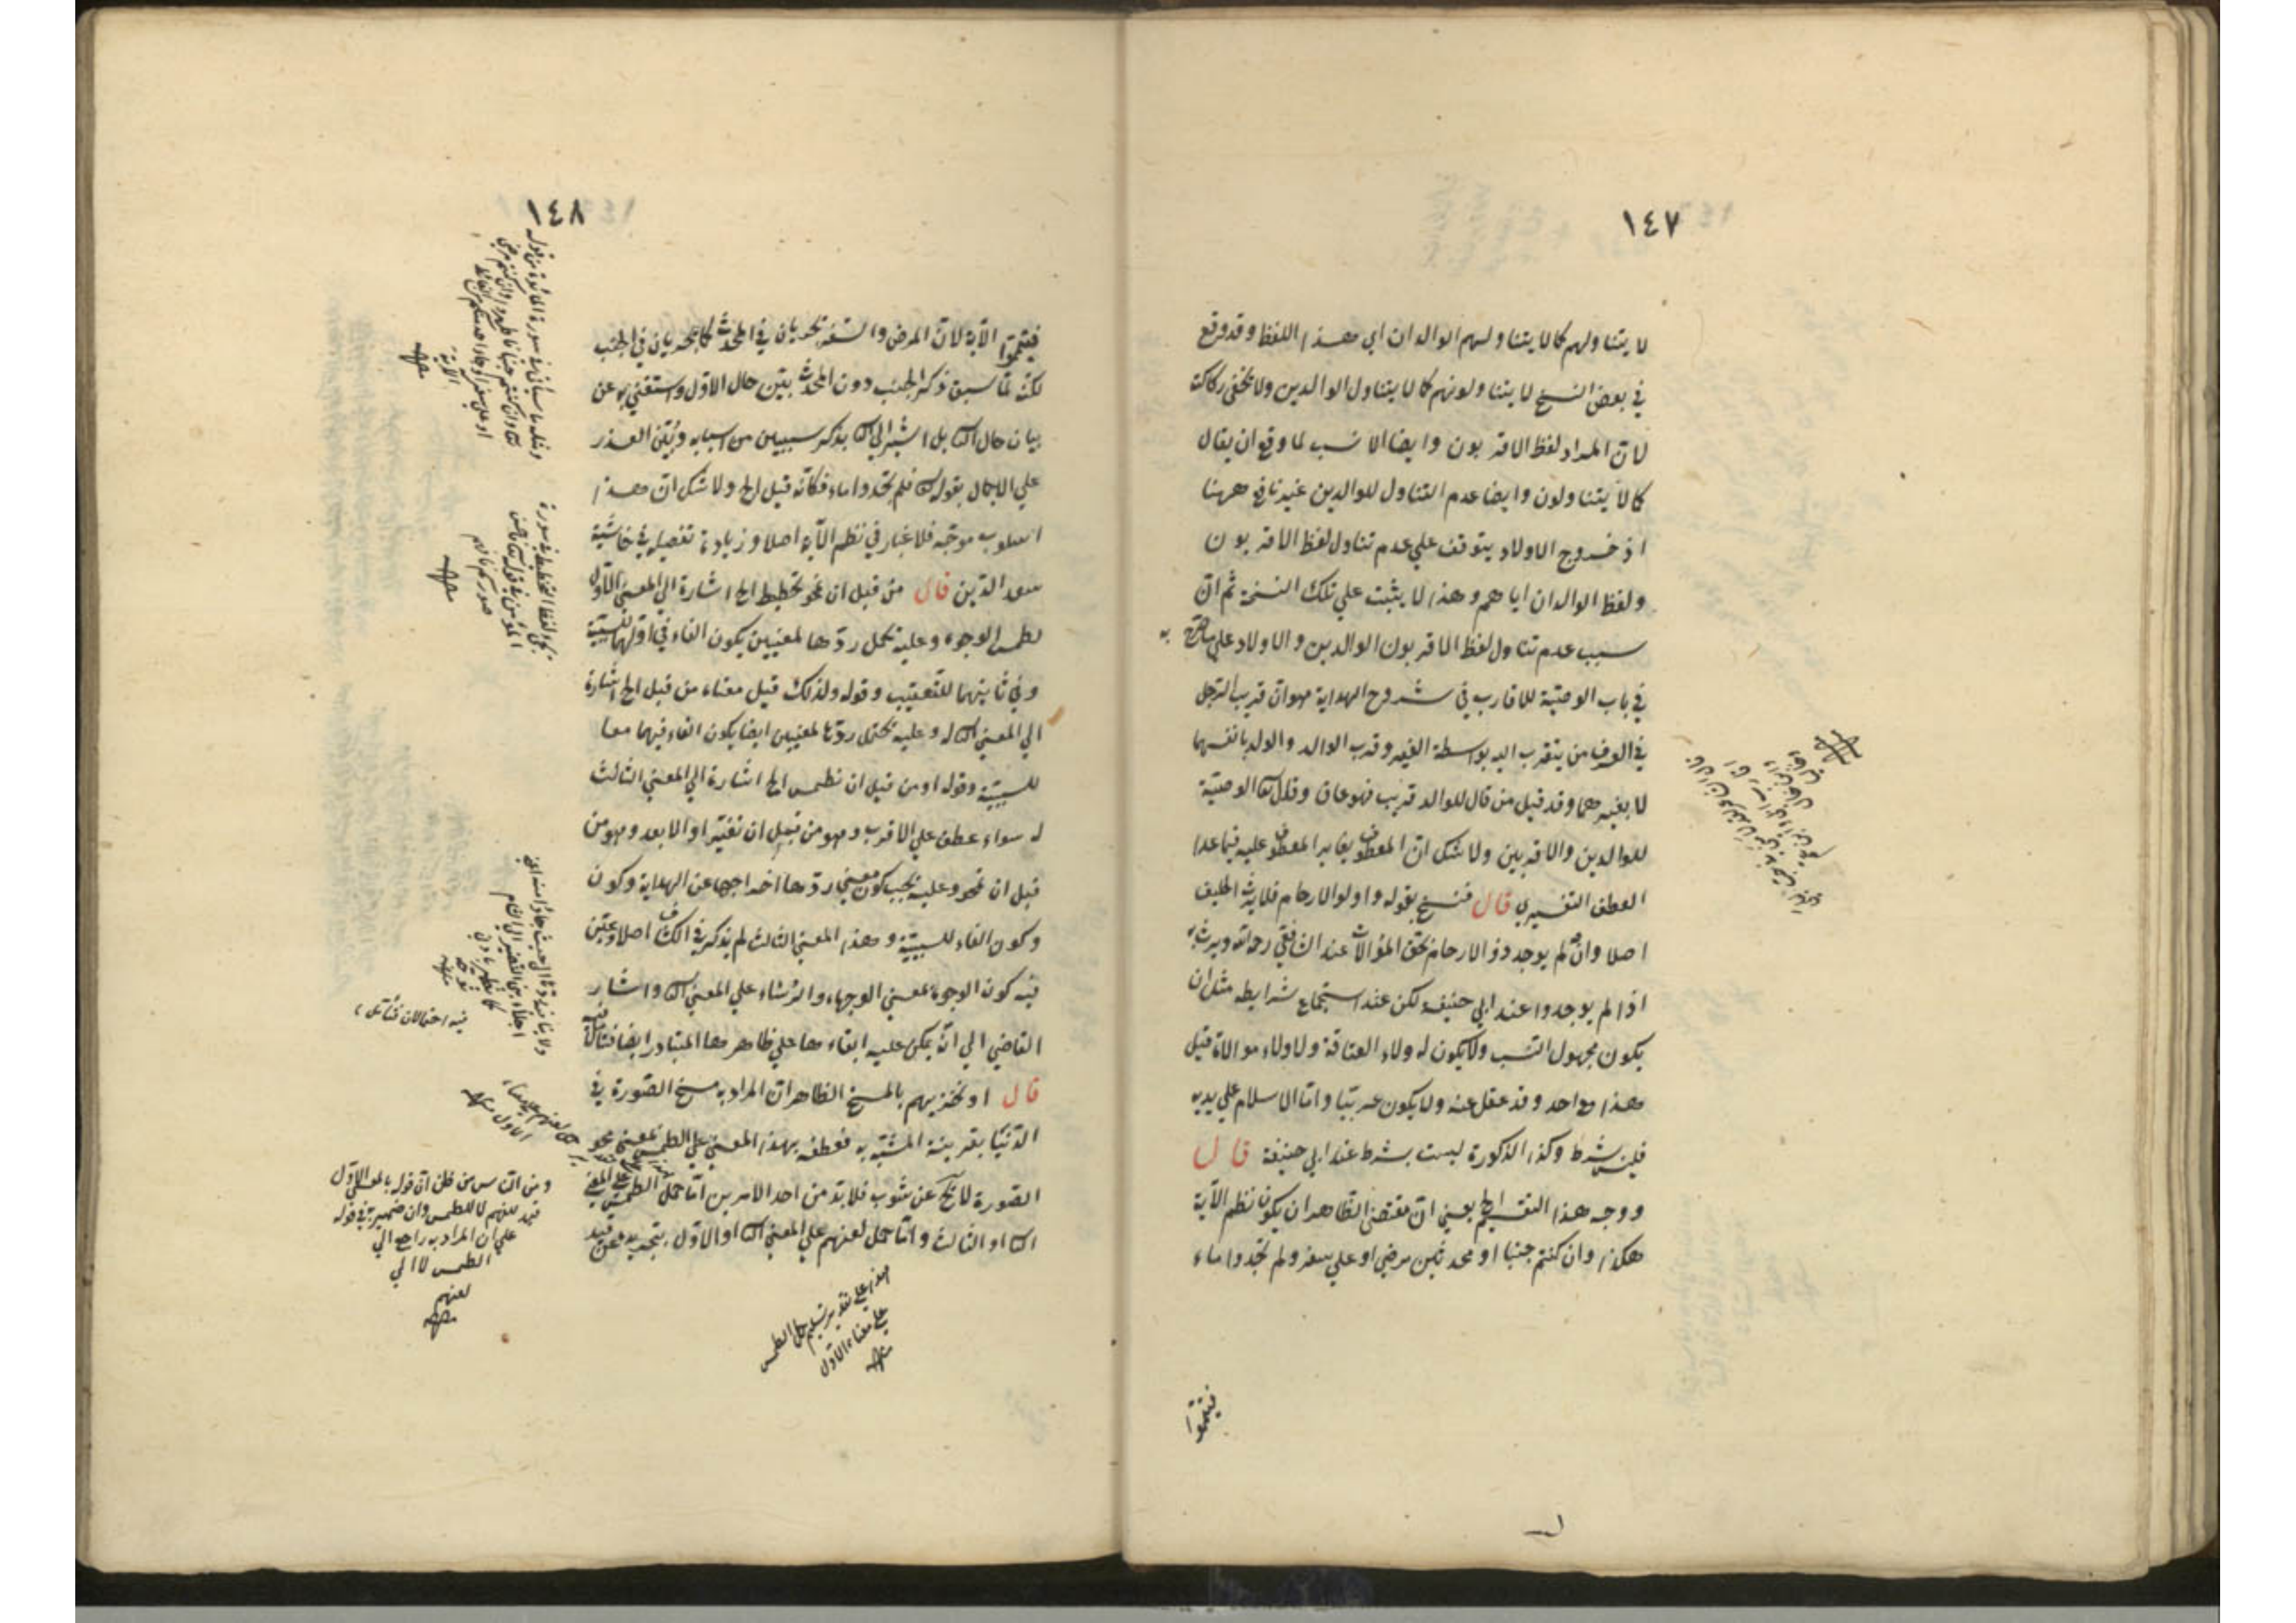 ١٤٧
لا يتناولهم كما لا يتناولهم الوالدان اي هذا اللفظ وقد وقع
في بعض النسخ لا يتناولونهم كما لا يتناول الوالدين ولا تخفى ركاكته
لان المراد لفظ الاقربون وايضا الانسب لما وقع ان يقال
كما لا يتناولون وايضا عدم التناول للوالدين غير نافع ههنا
اذ خروج الاولاد يتوقف علي عدم تناول لفظ الاقربون
ولفظ الوالدان اياهم وهذا لا يثبت علي تلك النسخة ثم ان
سبب عدم تناول لفظ الاقربون الوالدين والاولاد علي ما صرح به
في باب الوصية للاقارب في شروح الهداية هو ان قريب الرجل
في العرف من يتقرب اليه بواسطة الغير وقرب الوالد والولد بانفسهما
لا بغيرهما وقد قيل من قال للوالد قريب فهو عاق وقال تعا الوصية
للوالدين والاقربين ولا شك ان المعطوف يغاير المعطوف عليه فيما عدا
العطف التفسيري قال فنسخ بقوله واولوا الارحام فلا يرث الحليف
اصلا وان لم يوجد ذو الارحام بحق الموالات عند الشافعي رحمه الله ويرث به
اذا لم يوجدوا عند ابي حنيفة لكن عند استجماع شرايطه مثل ان
يكون مجهول النسب ولا يكون له ولاء العتاقة ولا ولاء موالاة قبل
هذا مع احد وقد عقل عنه ولا يكون عربيا واما الاسلام علي يديه
فليس بشرط وكذا الذكورة ليست بشرط عند ابي حنيفة قال
ووجه هذا التقسيم الخ يعني ان مقتضى الظاهر ان يكون نظم الآية
هكذا وان كنتم جنبا او محدثين مرضي او علي سفر ولم تجدوا ماء
فتيمموا
١٤٨
فتيمموا الآية لان المرض والسفر يجريان في المحدث كما يجريان في الجنب
لكنه لما سبق ذكر الجنب دون المحدث بين حال الاول واستغني به عن
بيان حال الثا بل اشير الي الثا بذكر سببين من اسبابه وبين العذر
علي الاجمال بقوله تعا فلم تجدوا ماء فكانه قيل الخ ولا شك ان هذا
اسلوب موجه فلا غبار في نظم الآية اصلا وزيادة تفصيل في حاشية
سعد الدين قال من قبل ان نمحو تخطيط الخ اشارة الي المعني الاول
لطمس الوجوه وعليه تحمل ردها لمعنيين يكون الفاء في اولهما للسببية
وفي ثانيهما للتعقيب وقوله ولذلك قيل معناه من قبل الخ اشارة
الي المعني الثا له وعليه تحتمل ردها لمعنيين ايضا يكون الفاء فيهما معا
للسببية وقوله او من قبل ان نطمس الخ اشارة الي المعني الثالث
له سواء عطف علي الاقرب وهو من قبل ان نغير او الابعد وهو من
قبل ان نمحو وعليه يجب كون معني ردها اخراجها عن الهداية وكون
وكون الفاء للسببية وهذا المعني الثالث لم يذكر في الكشاف اصلا وعين
فيه كون الوجوه بمعني الوجهاء والرؤساء علي المعني الثا واشار
القاضي الي انه يمكن عليه ابقاء ها علي ظاهرها المتبادر ايضا فتامل
قال او نخزيهم بالمسخ الظاهر ان المراد به مسخ الصورة في
الدنيا بقرينة المشبه به فعطفه بهذا المعني علي الطمس بمعني محو
الصورة لا يخ عن شوب فلا بد من احد الامرين اما حمل الطمس علي المعني
الثا او الثالث واما حمل لعنهم علي المعني الثا او الاول بتجريده عن قيد
فيه احتمالان فتامل
ومن الناس من ظن ان قوله بالمعني الاول
قيد للعنهم لا للطمس وان ضميره في قوله
علي ان المراد به راجع الي
الطمس لا الي
لعنهم
هذا علي تقدير تسليم حمل الطمس
علي معناه الاول